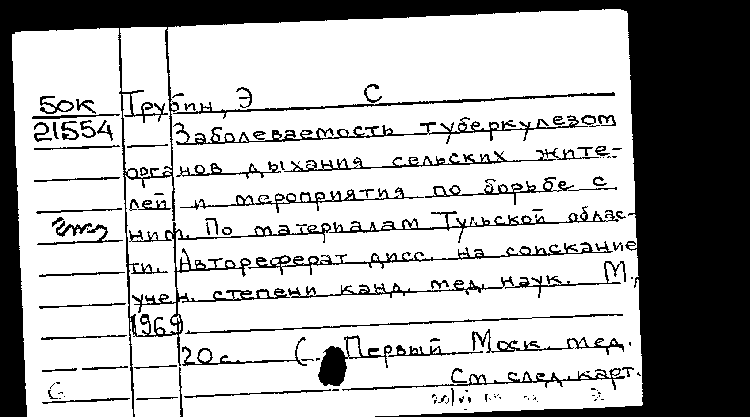 50К Трубин, Э С
21554 Заболеваемость туберкулезом
органов дыхания сельских жите-
лей и мероприятия по борьбе с
ним. По материалам Тульской облас-
ти. Автореферат дисс. на соискание
учен. степени канд. мед. наук. М.,
1969.
20 с. (Первый Моск. мед.
См. след. карт.